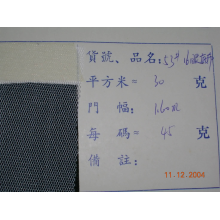 貨號、品名:55#
平方米= 30 克
門 幅: 1.60m
每 碼= 45 克
備 註:
11.12.2004